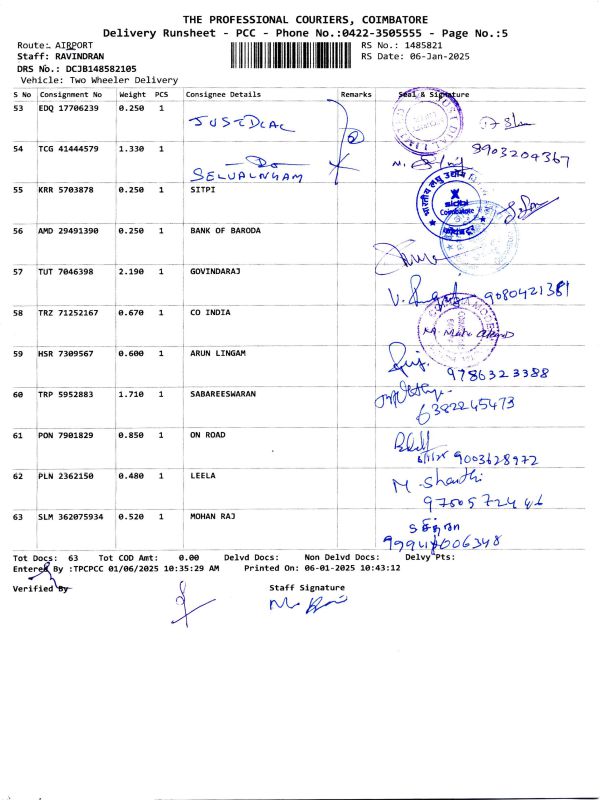 THE PROFESSIONAL COURIERS, COIMBATORE
Delivery Runsheet - PCC - Phone No.:0422-3505555 - Page No.:5
Route: AIRPORT RS No.: 1485821
Staff: RAVINDRAN RS Date: 06-Jan-2025
DRS No.: DCJB148582105
Vehicle: Two Wheeler Delivery
S No Consignment No Weight PCS Consignee Details Remarks Seal & Signature
53 EDQ 17706239 0.250 1 JUSTDIAL
54 TCG 41444579 1.330 1 9903204367
SELVALNGAM
55 KRR 5703878 0.250 1 SITPI
Coimbatore
56 AMD 29491390 0.250 1 BANK OF BARODA
57 TUT 7046398 2.190 1 GOVINDARAJ
9080421381
58 TRZ 71252167 0.670 1 CO INDIA
59 HSR 7309567 0.600 1 ARUN LINGAM
9786323388
60 TRP 5952883 1.710 1 SABAREESWARAN
6382245473
61 PON 7901829 0.850 1 ON ROAD
6/1/25 9003628972
62 PLN 2362150 0.480 1 LEELA M. Shanthi
63 SLM 362075934 0.520 1 MOHAN RAJ
Tot Docs: 63 Tot COD Amt: 0.00 Delvd Docs: Non Delvd Docs: Delvy Pts:
Entered By :TPCPCC 01/06/2025 10:35:29 AM Printed On: 06-01-2025 10:43:12
Verified By Staff Signature